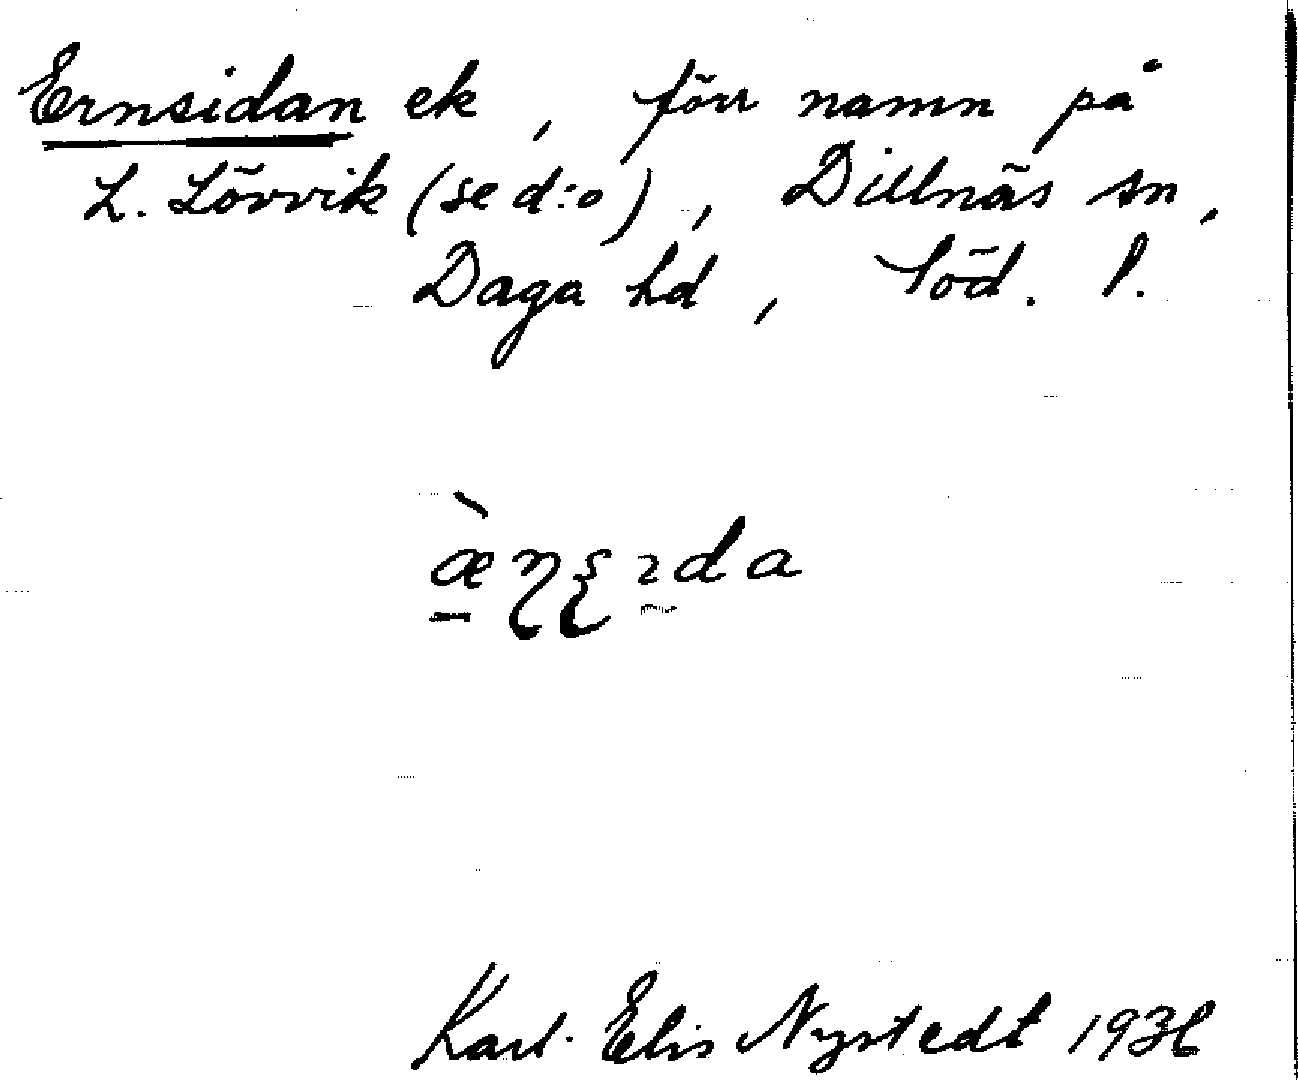 Ernsidan ek, förr namn på
L. Lövvik (se d:o), Dillnäs sn,
Daga hd, Söd. l.
æ̀ɳʂɪda
Karl-Elis Nystedt 1936